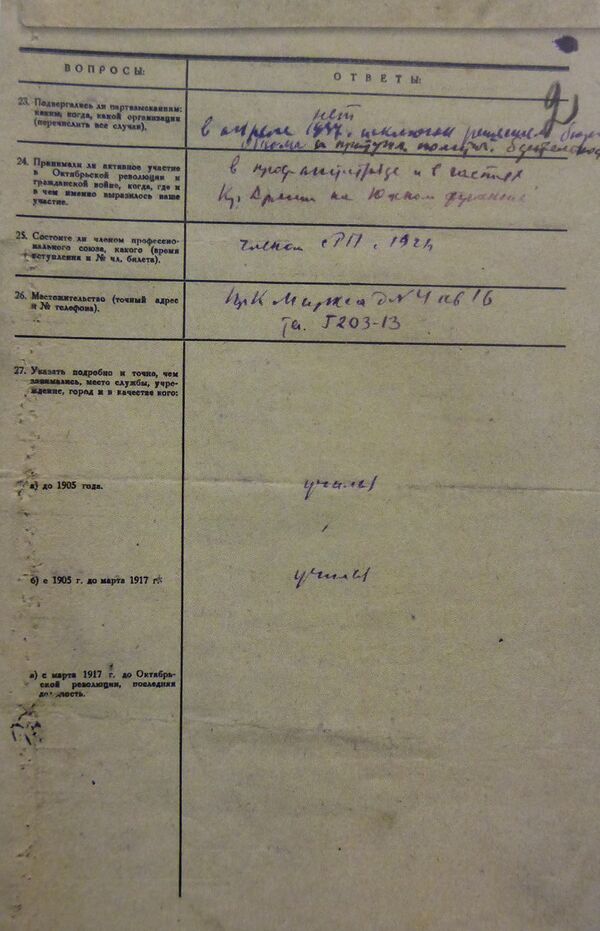 ВОПРОСЫ:
ОТВЕТЫ:
23. Подвергались ли партвзысканиям:
каким, когда, какой организации
(перечислить все случаи).
нет
в апреле 1937. исключен решением бюро
24. Принимали ли активное участие
в Октябрьской революции и
гражданской войне, когда, где и
в чем именно выразилось ваше
участие.
в и в частях
Кр. Армии на Южном фронте
25. Состоите ли членом профессио-
нального союза, какого (время
вступления и № чл. билета).
членом с 192
26. Местожительство (точный адрес
и № телефона).
К Маркса д N 4 кв 16
203-13
27. Указать подробно и точно, чем
занимались, место службы, учре-
ждение, город и в качестве кого:
а) до 1905 года.
учился
б) с 1905 г. до марта 1917 г.
учился
в) с марта 1917 г. до Октябрь-
ской революции, последняя
должность.